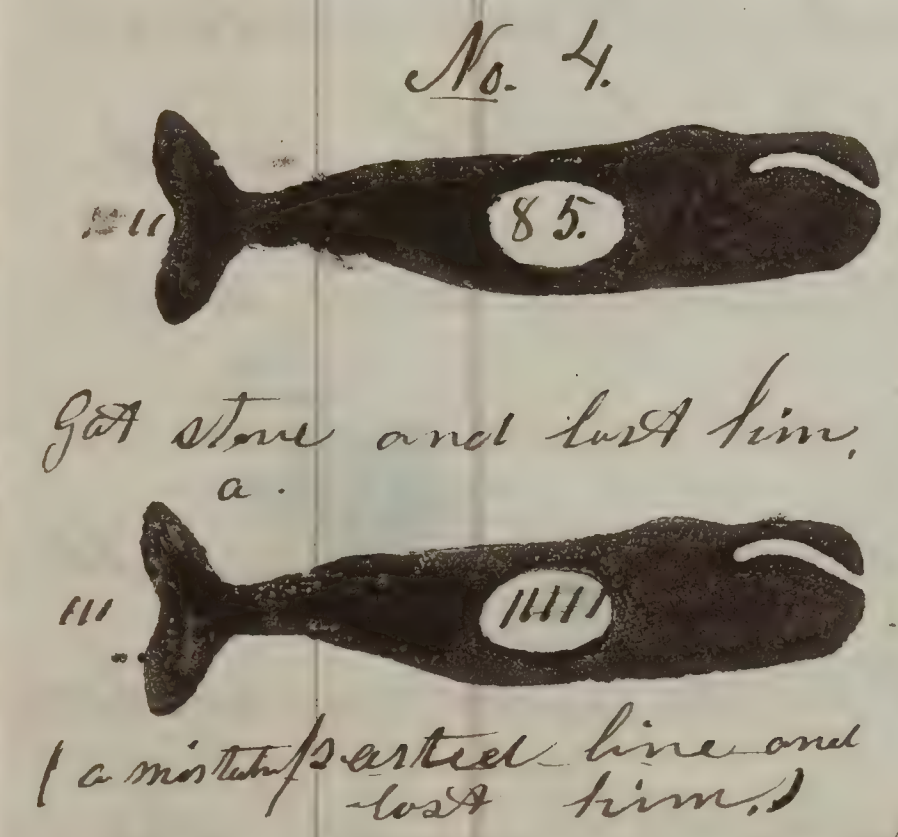 No. 4.
85.
Got stove and lost him,
a.
(a mistake) Parted line and
lost him.)